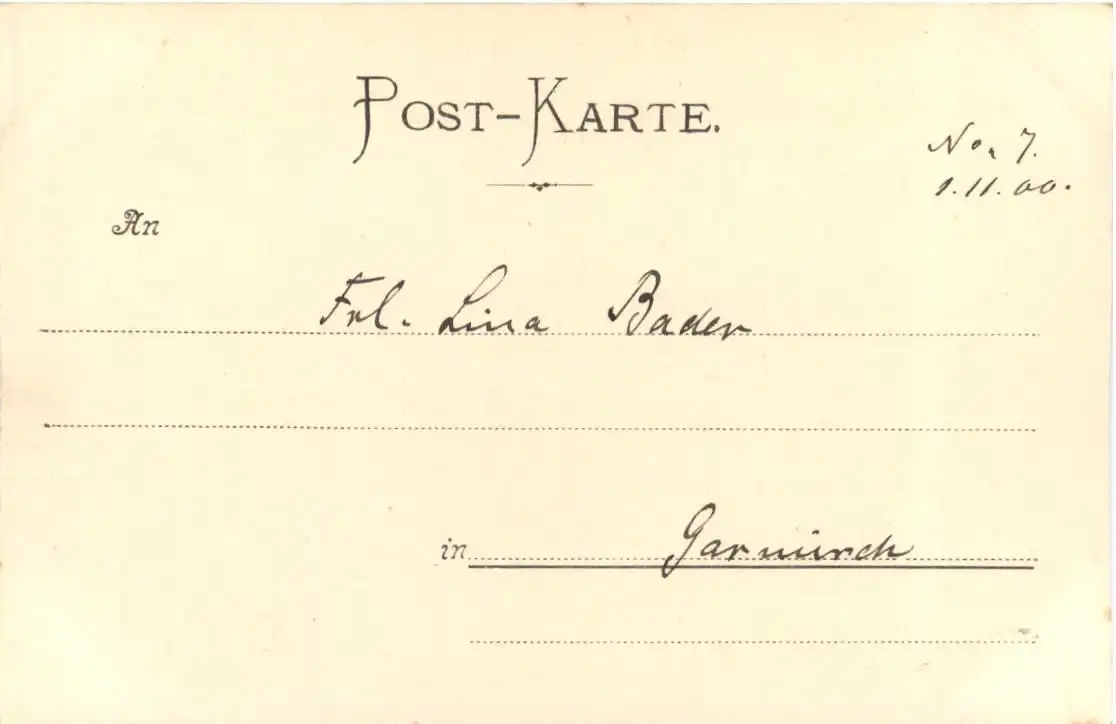 POST-KARTE.
No. 7.
1.11.00.
An
Frl. Lina Bader
in Garmisch